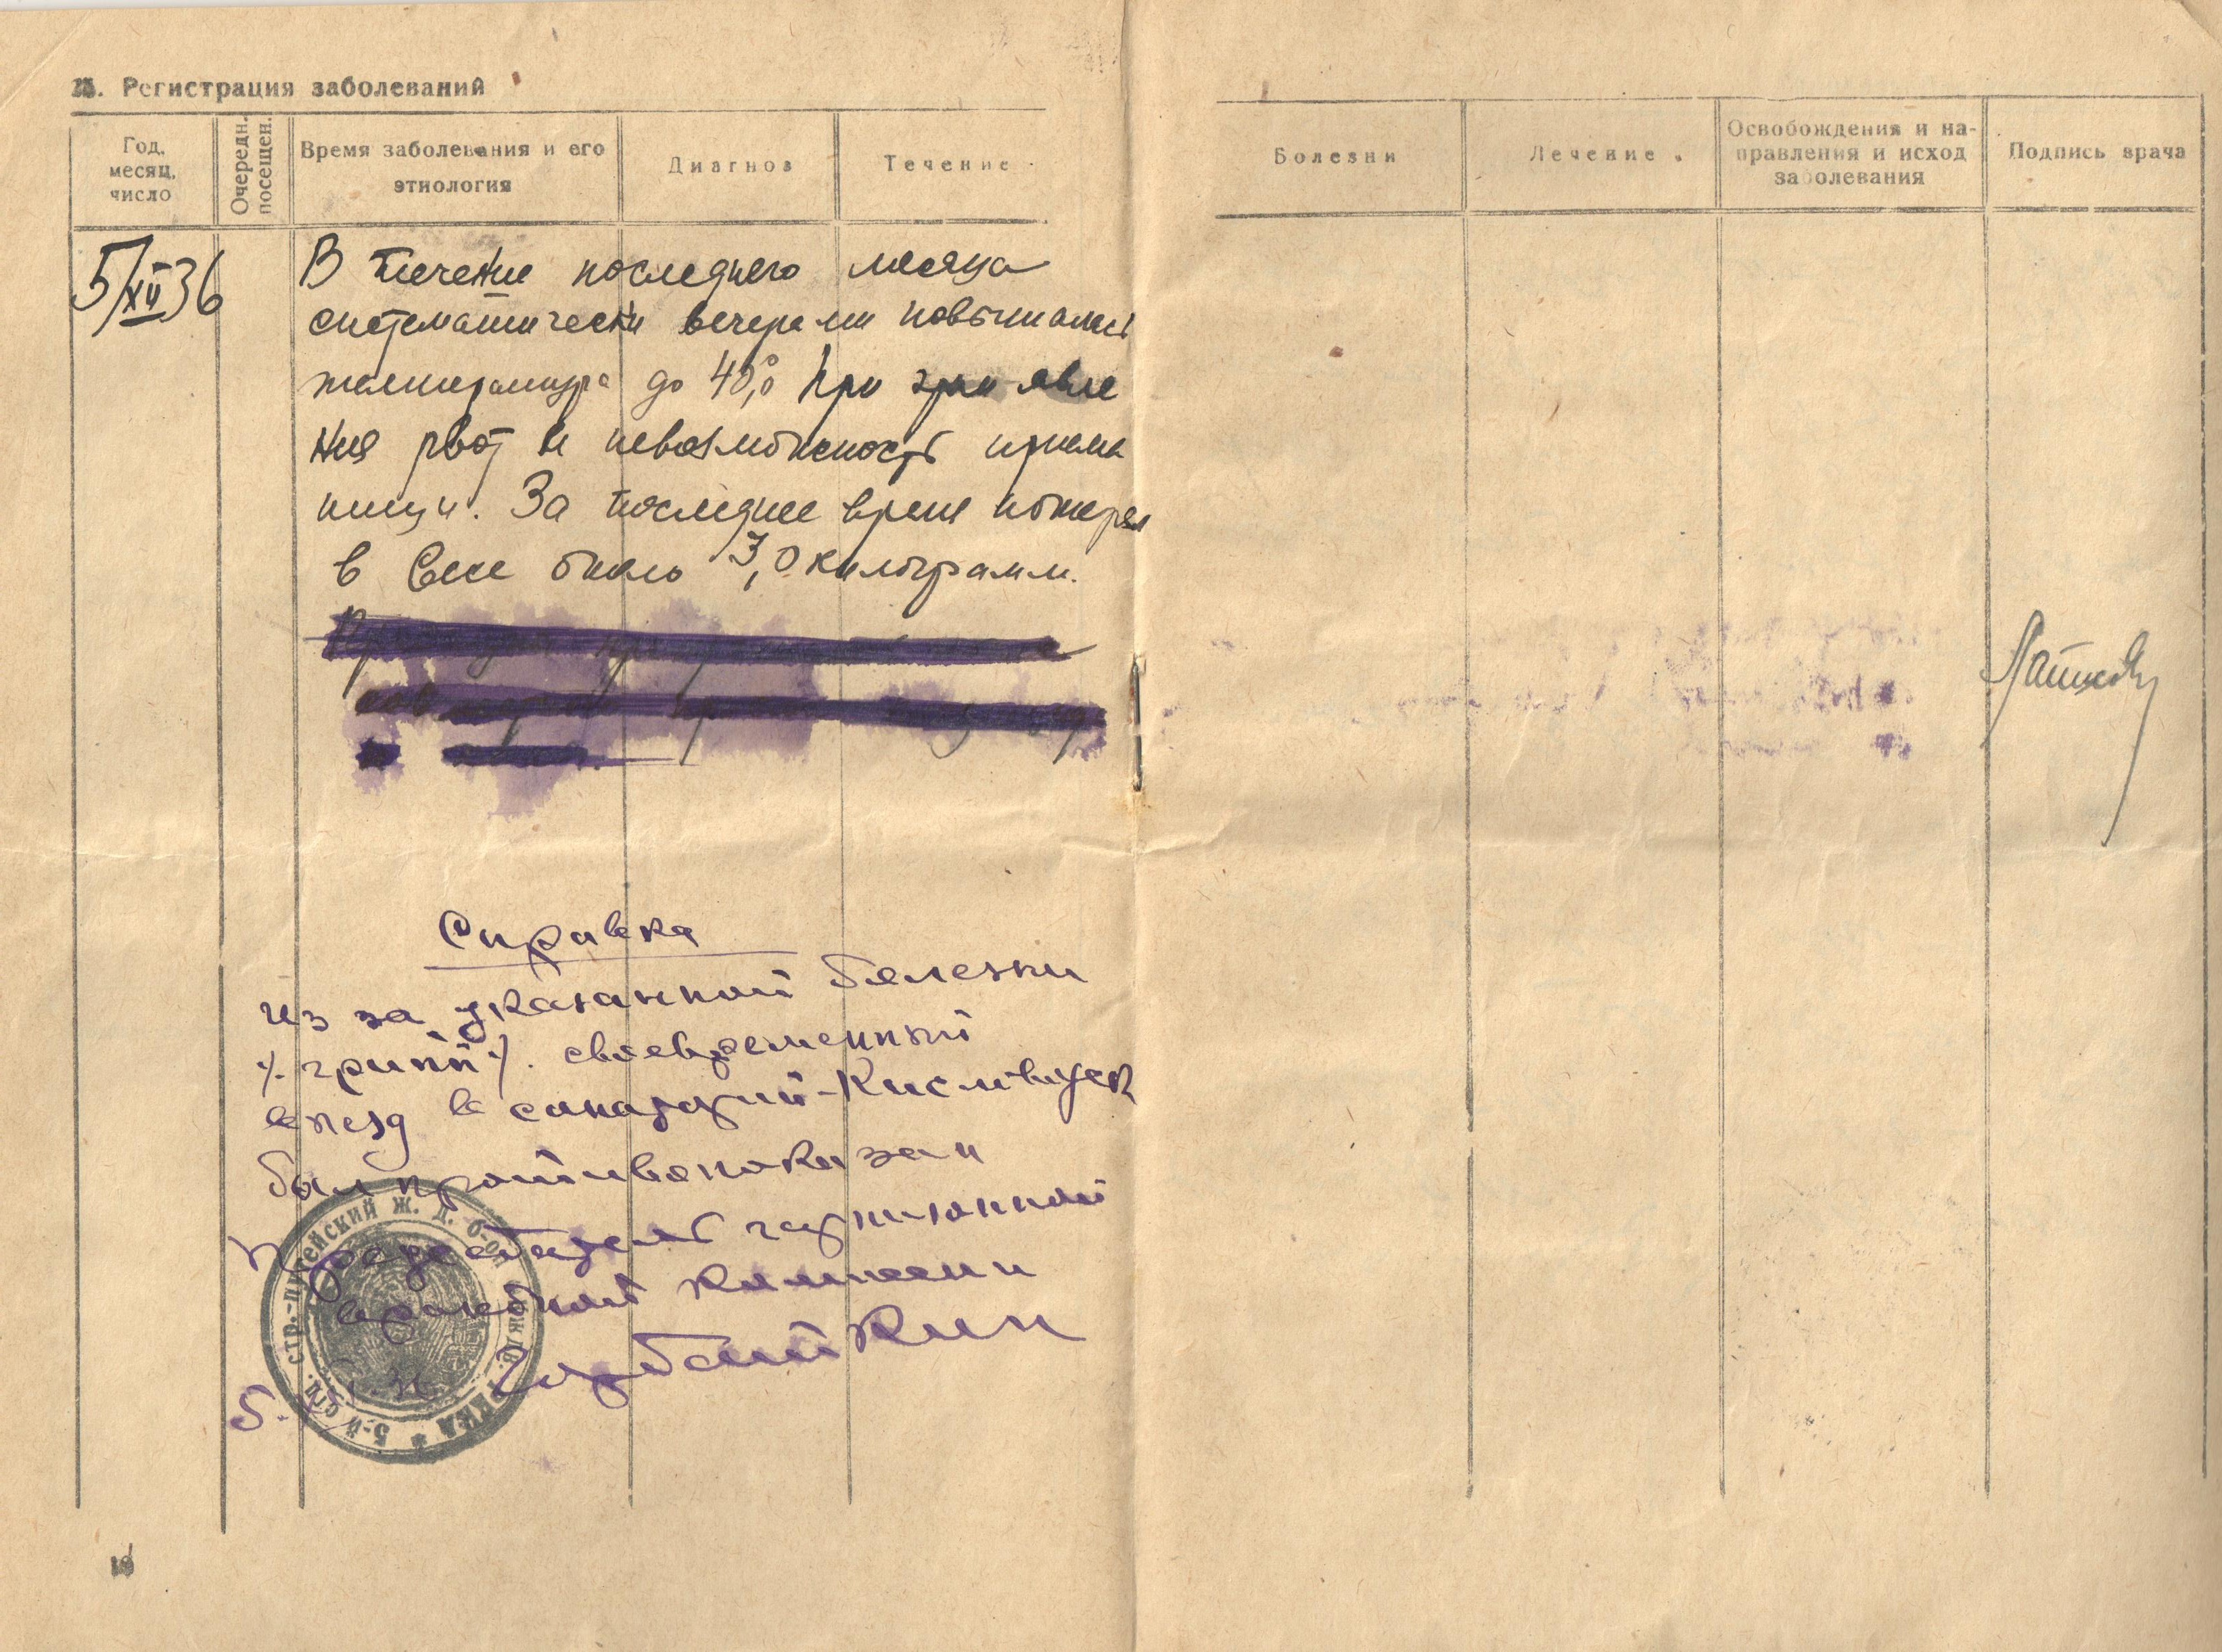 . Регистрация заболеваний
Год, месяц, число
Очередн. посещен.
Время заболевания и его этиология
Диагноз
Течение
Болезни
Лечение
Освобождения и направления и исход заболевания
Подпись врача
5/XII 36
В течение последнего месяца
систематически вечерами повышалась
температура до 40,0° При явле
ния рвот и невозможность приема
пищи. За последнее время потерял
в весе около 3,0 килограмм.
Справка
из за указанной болезни
/. грипп ./. своевременный
в санаторий-Кисловодск
был противопоказан
Председатель гарнизонной
врачебной комиссии
5.
5-й стр.-путейский Ж. Д. б-он РККА